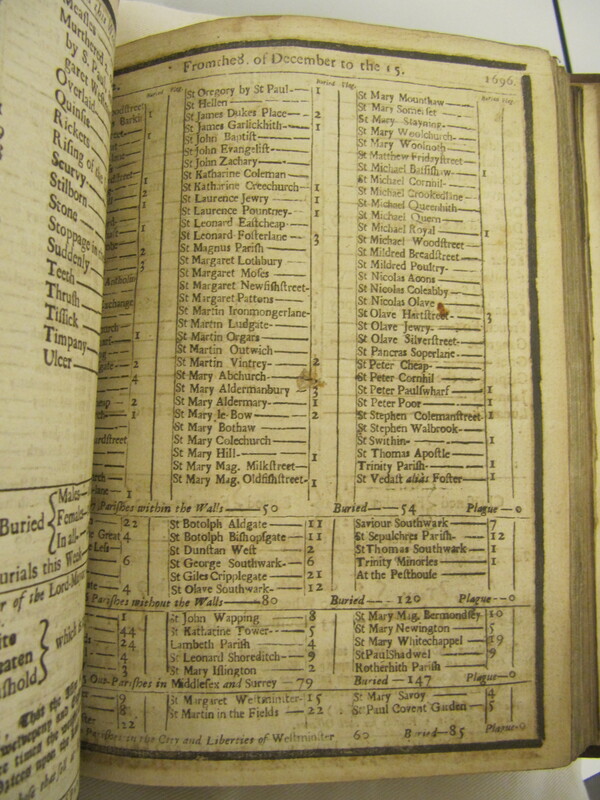 Measles
Murthered
by S. Paul
garet West
Overlaid
Quinsie
Rickets
Rising of the
Scurvy
Stilborn
Stone
Stoppage in
Suddenly
Teeth
Thrush
Tissick
Timpany
Ulcer
Buried
Males
Females
In all
urials this Week
From the 8. of December to the 15. 1696.
Buried Plag.
St Gregory by St Paul— 1
St Hellen
St James Dukes Place— 2
St James Garlickhith— 1
St John Baptist
St John Evangelist
St John Zachary
St Katharine Coleman
St Katharine Creechurch— 1
St Laurence Jewry— 1
St Laurence Pountney— 1
St Leonard Eastcheap
St Leonard Fosterlane
St Magnus Parish
St Margaret Lothbury
St Margaret Moses
St Margaret Newfishstreet
St Margaret Pattons
St Martin Ironmongerlane
St Martin Ludgate
St Martin Orgars
St Martin Outwich
St Martin Vintrey— 2
St Mary Abchurch
St Mary Aldermanbury— 3
St Mary Aldermary— 1
St Mary le Bow— 2
St Mary Bothaw
St Mary Colechurch
St Mary Hill— 1
St Mary Mag. Milkstreet
St Mary Mag. Oldfishstreet— 1
Buried Plag.
St Mary Mounthaw
St Mary Somerset
St Mary Stayning
St Mary Woolchurch
St Mary Woolnoth
St Matthew Fridaystreet
St Michael Bassishaw— 1
St Michael Cornhil
St Michael Crookedlane
St Michael Queenhith
St Michael Quern
St Michael Royal— 1
St Michael Woodstreet
St Mildred Breadstreet
St Mildred Poultry
St Nicolas Acons
St Nicolas Coleabby
St Nicolas Olave
St Olave Hartstreet— 3
St Olave Jewry
St Olave Silverstreet
St Pancras Soperlane
St Peter Cheap
St Peter Cornhil
St Peter Paulswharf— 1
St Peter Poor— 1
St Stephen Colemanstreet— 1
St Stephen Walbrook
St Swithin— 1
St Thomas Apostle
Trinity Parish— 1
St Vedast alias Foster— 1
Parishes within the Walls— 50 Buried— 54 Plague— 0
22
Great 4
Less
6
4
St Botolph Aldgate— 11
St Botolph Bishopsgate— 11
St Dunstan West— 2
St George Southwark— 6
St Giles Cripplegate— 21
St Olave Southwark— 12
Saviour Southwark— 7
St Sepulchres Parish— 12
St Thomas Southwark— 1
Trinity Minories— 1
At the Pesthouse
Parishes without the Walls— 80 Buried— 120 Plague— 0
1
44
24
4
3
St John Wapping— 8
St Katharine Tower— 5
Lambeth Parish— 4
St Leonard Shoreditch— 9
St Mary Islington— 2
St Mary Mag. Bermondsey 10
St Mary Newington— 5
St Mary Whitechappel
St Paul Shadwel— 9
Rotherhith Parish
Out-Parishes in Middlesex and Surrey— 79 Buried— 147 Plague— 0
9
8
22
St Margaret Westminster— 15
St Martin in the Fields— 22
St Mary Savoy— 4
St Paul Covent Garden— 5
Parishes in the City and Liberties of Westminster 60 Buried— 85 Plague— 0